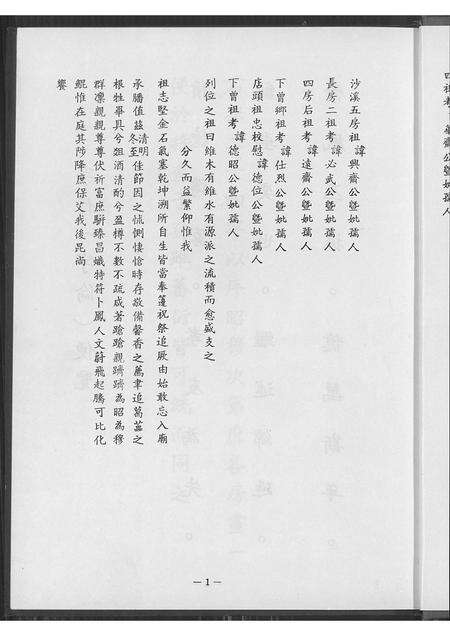 沙溪五房祖諱興齋公暨妣孺人
長房二祖考諱必武公暨妣孺人
四房后祖考諱遠齋公暨妣孺人
下曾鄉祖考諱仕烈公暨妣孺人
店頭祖忠校尉諱德位公暨妣孺人
下曾祖考諱德昭公暨妣孺人
列位之祖曰維木有維水有源派之流積而愈盛支之
分久而益繁仰惟我
祖志堅金石氣塞乾坤溯所自生皆當奉籩祝祭追厥由始敢忘入廟
承膰值茲清明冬至佳節因之怵惻悽愴時存敬備馨香之薦聿追葛藟之
根牲畢具兮俎酒清酌兮盈樽不數不疏成著蹌蹌親躋躋為昭為穆
群凜親親尊尊伏祈富庶駢臻昌熾特符卜鳳人文蔚飛起騰可比化
鯤惟在庭其陟降庶保艾我後昆尚
饗
—1—